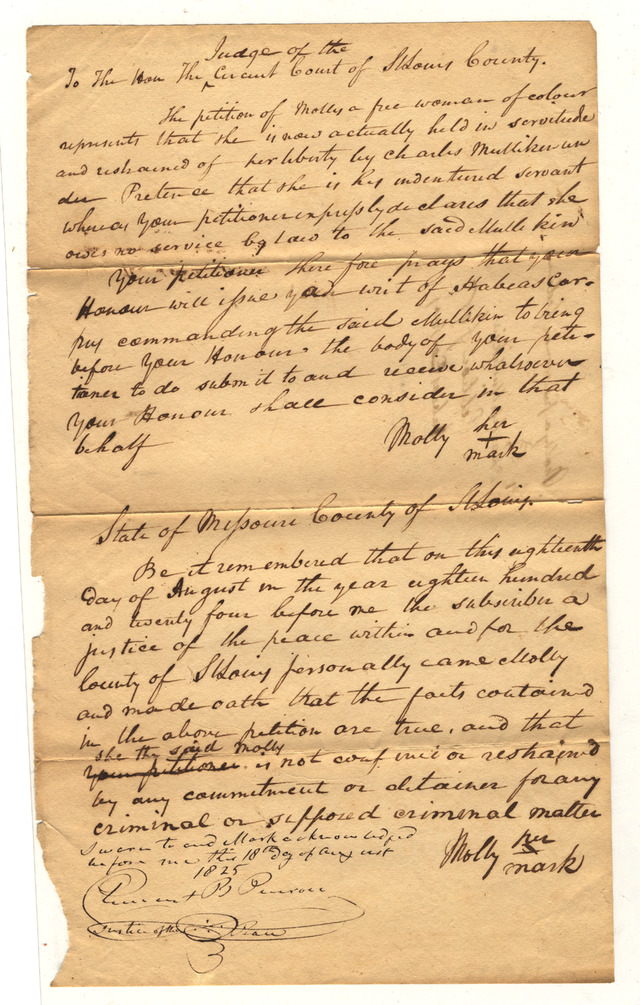 Judge of the
To The Hon The ‸ Circuit Court of St Louis County.
The petition of Molly a free woman of colour
represents that she is now actually held in servitude
and restrained of her liberty by Charles Mullikin un
der Pretence that she is his indentured servant
whereas your petitioner expressly declares that she
owes no service by law to the said Mullikin
Your petitioner therefore prays that your
Honour will issue your writ of Habeas Cor-
pus commanding the said Mullikin to bring
before your Honour the body of your peti-
tioner to do submit to and receive whatsoever
your Honour shall consider in that
behalf
Molly her
+
mark
State of Missouri County of St Louis.
Be it remembered that on this eighteenth
day of August in the year eighteen hundred
and twenty four before me the subscriber a
justice of the peace within and for the
County of St Louis personally came Molly
and made oath that the facts contained
in the above petition are true, and that
she the said Molly
your petitioner is not confined or restrained
by any commitment or detainer for any
criminal or supposed criminal matter
Sworn to and Mark acknowledged
before me this 18th day of August
1825
Molly her
x
mark
B
Justice of the Peace